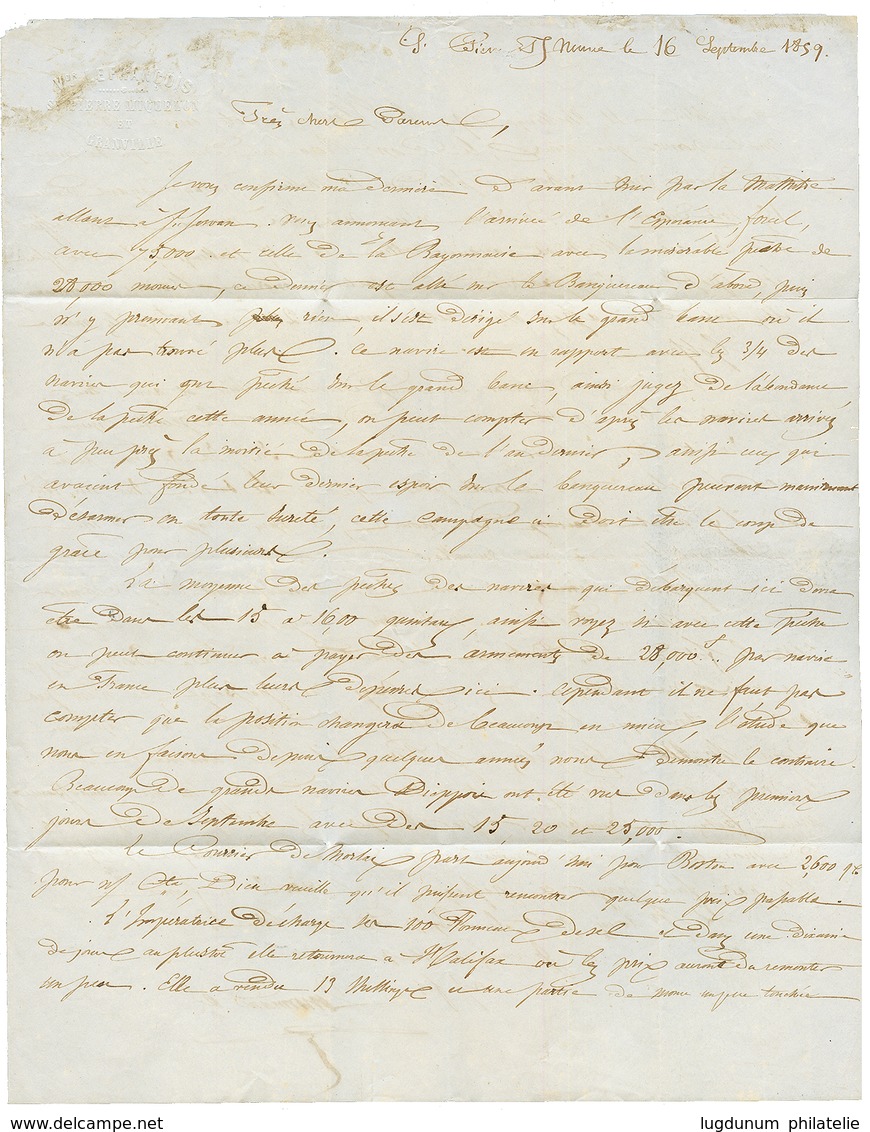 St Pierre Th Neuve le 16 Septembre 1859.
ST PIERRE MIQUELON
ET
GRANVILLE
Très chers Parents,
Je vous confirme ma dernière d'avant hier par la Mathilde
allant à St Servan vous annonçant l'arrivée de l'Espérance,
avec 75,000 et celle de la Bayonnaise avec la misérable pêche de
28,000 morues, ce dernier est allé sur le Banquereau d'abord, puis
n'y prennant rien, il s'est dirigé sur le grand banc où il
n'a pas trouvé plus. Ce navire est en rapport avec les 3/4 des
navires qui ont pêché sur le grand banc, ainsi jugez de l'abondance
de la pêche cette année, on peut compter d'après les navires arrivés
à peu près la moitié de la pêche de l'an dernier, ainsi ceux qui
avaient fondé leur dernier espoir sur le banquereau peuvent maintenant
désarmer en toute sureté, cette campagne ci doit être le coup de
grâce pour plusieurs.
La moyenne des pêches des navires qui débarquent ici devra
être dans les 15 à 1600 quintaux, ainsi voyez si avec cette pêche
on peut continuer à payer des armements de 28,000f. par navire
en France plus leurs dépenses ici. Cependant il ne faut pas
compter que la position changera de beaucoup en mieux, l'étude que
nous en faisons depuis quelques années nous démontre le contraire.
Beaucoup de grands navires Dieppois ont été vus dans les premiers
jours de Septembre avec des 15, 20 et 25,000.
Le Courrier de Morlaix part aujourd'hui pour Boston avec 2600 qx
pour n/ Cte, Dieu veuille qu'il puissent rencontrer quelque prix passable.
L'Impératrice décharge ses 100 Tonneaux de sel et dans une dizaine
de jours au plustôt elle retournera à Halifax où les prix auront du remonter
un peu. Elle a vendu 13 et une partie de morue un peu touchée
delcampe.net
lugdunum philatelie